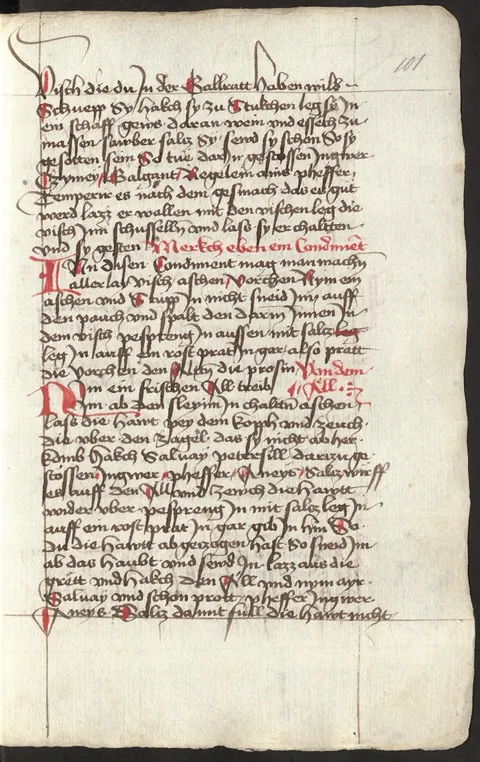 101
Visch die du In der Gallratt haben wild
Schuepp Sy hakch sy zu Stukchen leg sy In
ein schaff gews daran wein und essech zu
massen sawber saltz Sy send sy schon So sy
gesotten sein So tue dar In gestossen Ingwer
Galgant Negelein anis pheffer
Temperir es nach dem gesmach das es gut
werd lazz er wallen mit den vischen leg die
visch Inn schusselln und lass sy er chaltten
und sy gesten Merkch eben ein Condiment
In disen Condiment mag man machn
aller lay visch aschen vorchen Nym ein
aschen und Stupp In nicht sneid Im auff
den pauch und spalt den darm Innen In
dem visch pespreng In aussen mit saltz leg
leg In auff ein rost prat In gar also prett
die vorchen den die prosin Von dem
Nim ein frischen All treib All
Nym ab den sleym In chaltn aschen
lass die hawt pey dem koph und zeuch
die uber den zagel das sy nicht ab her
kumb hakch Saluay petersill darzu ge
stossen Ingwer pheffer Aneys Saltz wirff
es auff den All und zewch die hawtt
wider uber pespreng In mit saltz leg In
auff ein rost prat In gar gib In hin So
du die hawtt abgezogen hast So sneid Im
ab das haubt und send In lazz aus die
grett und hakch den All und nym ayr
Saluay und schon prott pheffer Ingwer
Aneys Saltz damit full die hawt nicht